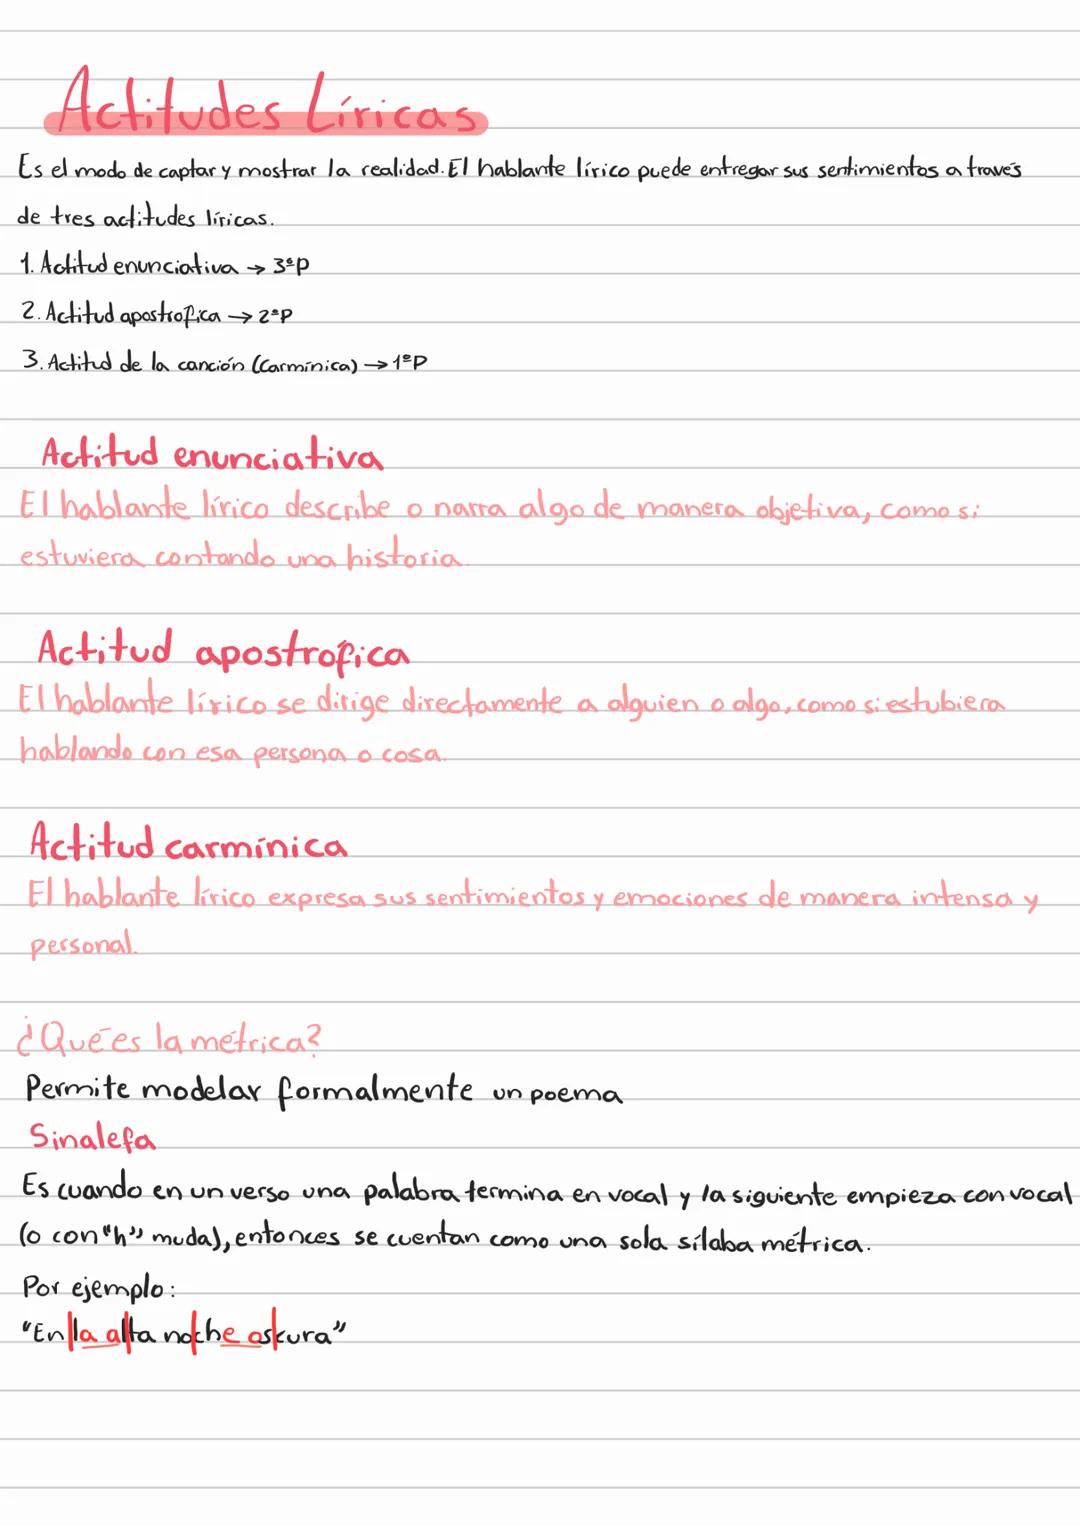 Actitudes Líricas
Es el modo de captar y mostrar la realidad. El hablante lírico puede entregar sus sentimientos a través
de tres actitudes líricas.
1. Actitud enunciativa → 3ªP
2. Actitud apostrofica → 2ªP
3. Actitud de la canción (Carmínica) → 1ºP
Actitud enunciativa
El hablante lírico describe o narra algo de manera objetiva, como si
estuviera contando una historia.
Actitud apostrofica
El hablante lírico se dirige directamente a alguien o algo, como si estubiera
hablando con esa persona o cosa.
Actitud carmínica
El hablante lírico expresa sus sentimientos y emociones de manera intensa y
personal.
¿Qué es la métrica?
Permite modelar formalmente un poema
Sinalefa
Es cuando en un verso una palabra termina en vocal y la siguiente empieza con vocal
(o con "h" muda), entonces se cuentan como una sola sílaba métrica.
Por ejemplo:
"En|la al|ta no|che os|kura"